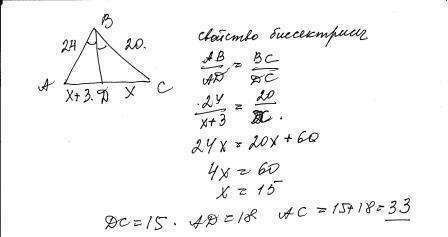 B
24 20.
A x+3. D x C
свойство биссектрисы
AB/AD = BC/DC
24/x+3 = 20/x.
24x = 20x + 60
4x = 60
x = 15
DC = 15 . AD = 18 AC = 15+18 = 33